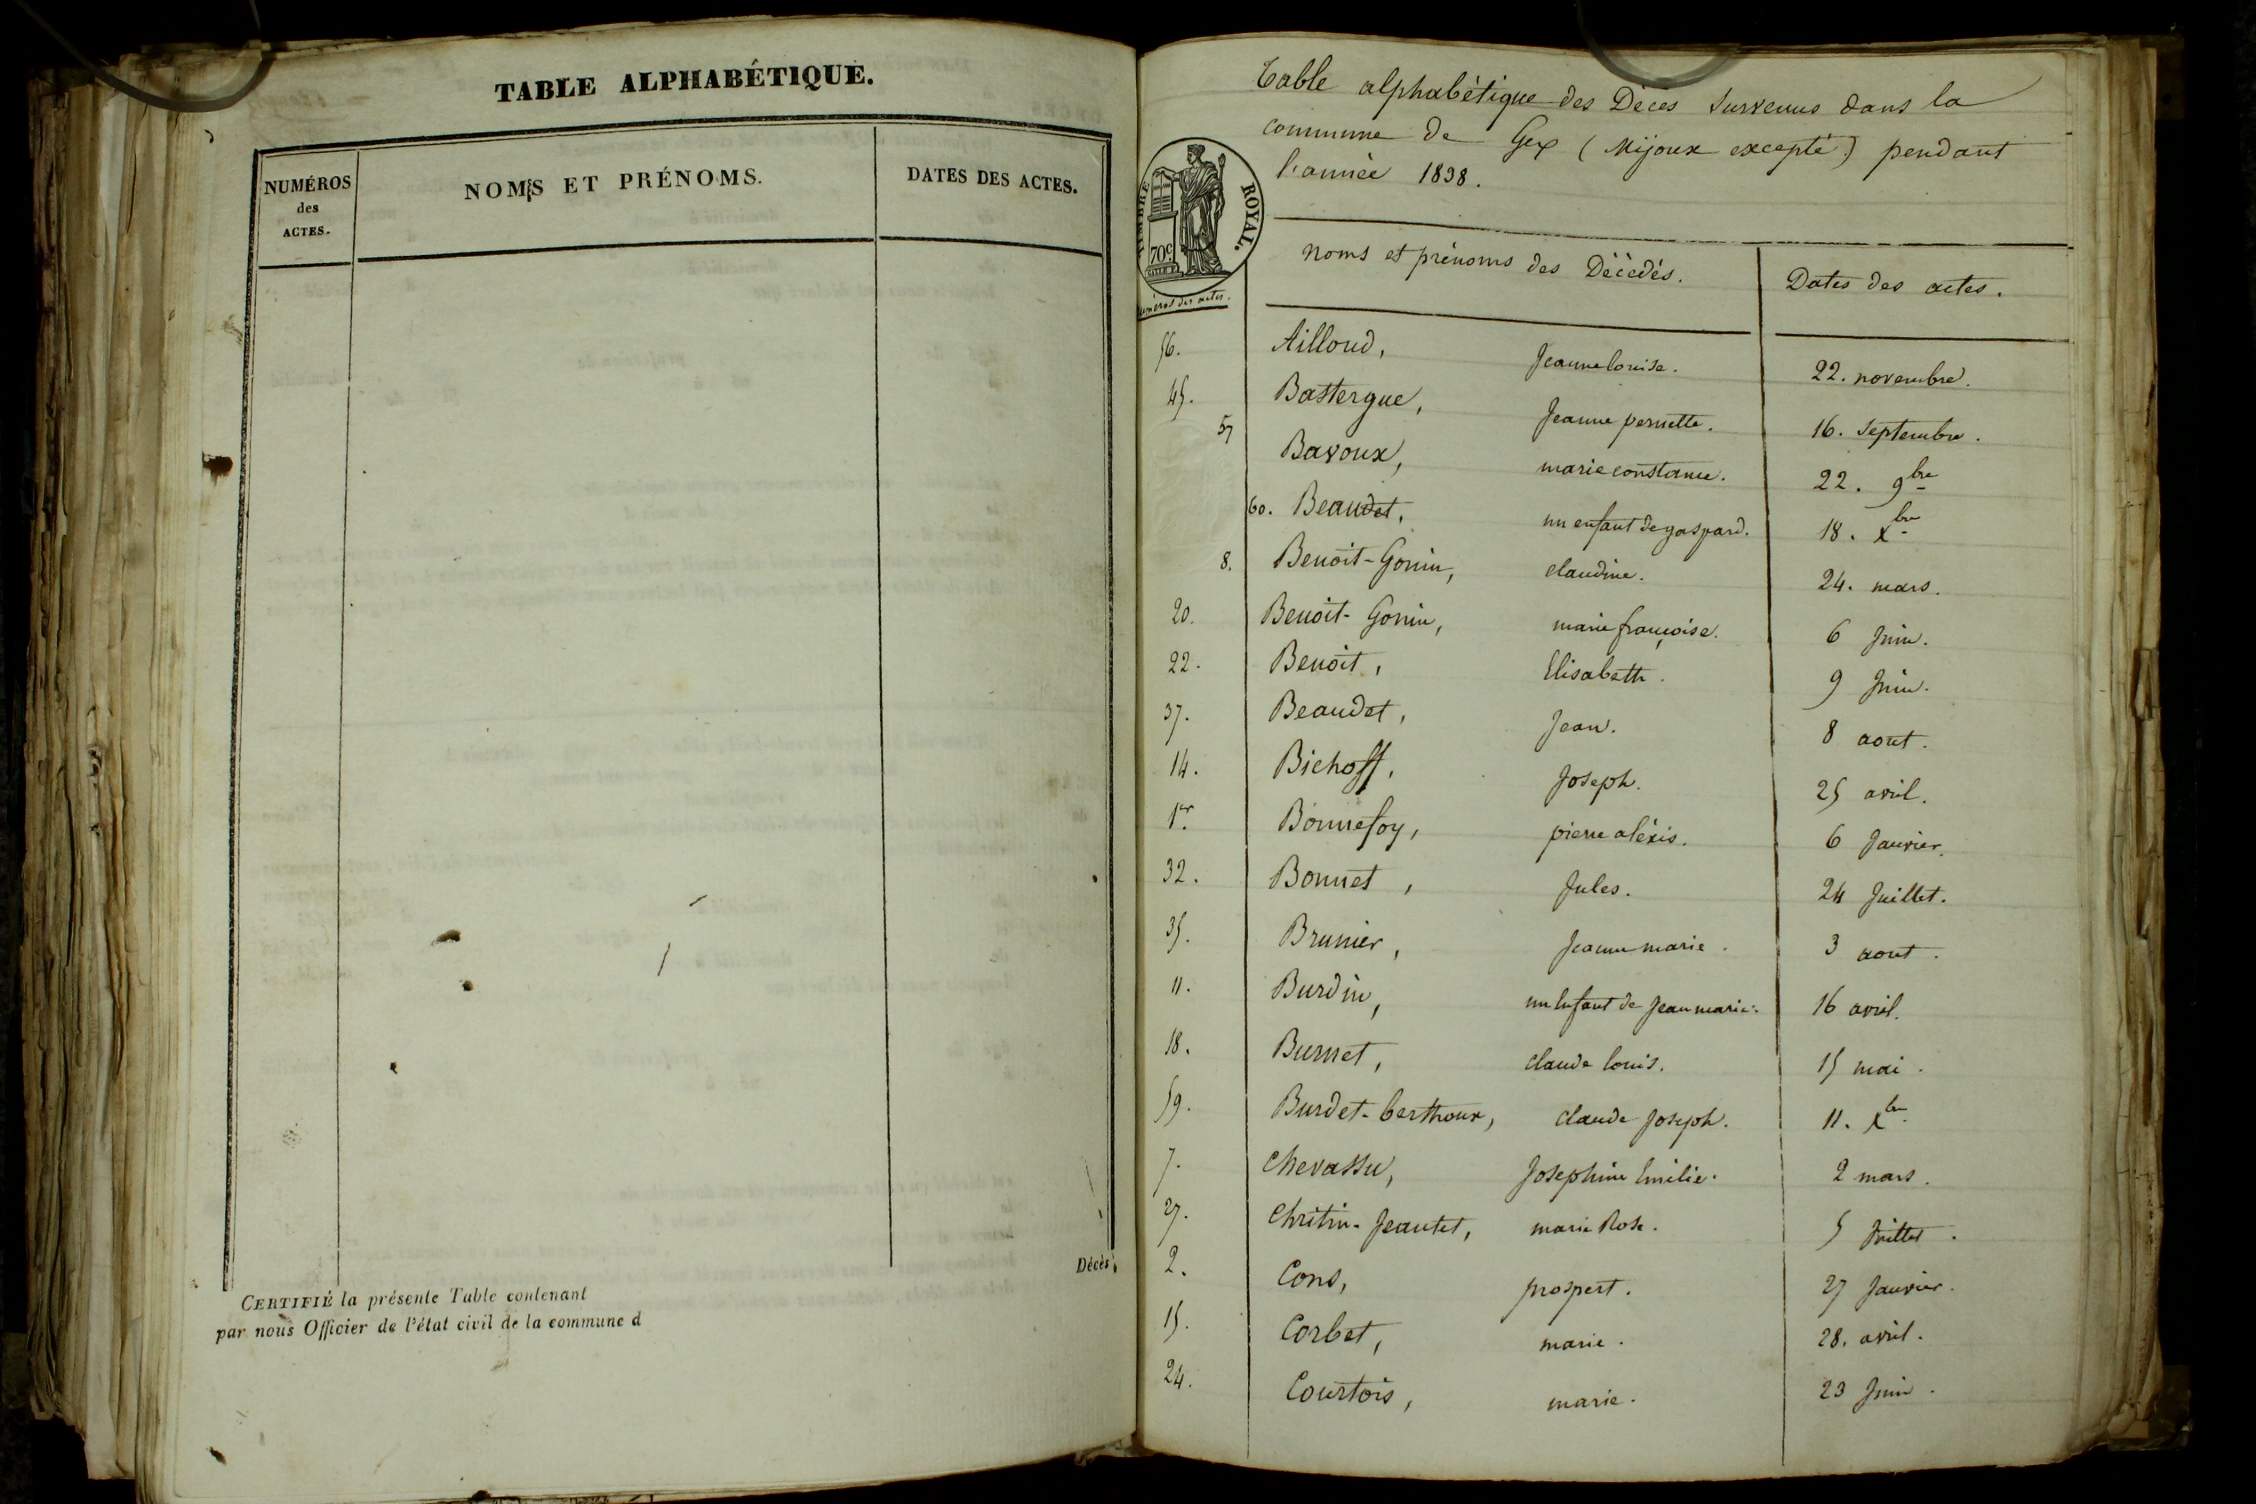 TABLE ALPHABÉTIQUE.
NUMÉROS des ACTES. NOMS ET PRÉNOMS. DATES DES ACTES.
Décès.
CERTIFIÉ la présente Table contenant
par nous Officier de l'état civil de la commune d
Table alphabétique des Décès survenus dans la
commune de Gex (Mijoux excepté) pendant
l'année 1838.
TIMBRE ROYAL.
70c
Numéros des actes. Noms et prénoms des Décédés. Dates des actes.
56.Ailloud, Jeanne louise. 22. novembre.
45. Bastergue, Jeanne pernette. 16. Septembre.
57 Bavoux, marie constance. 22. 9bre
60. Beaudet, un enfant de gaspard. 18. Xbre
8. Benoit-Gonin, claudine. 24. mars.
20. Benoit-Gonin, marie françoise. 6 Juin.
22. Benoit, Elisabeth. 9 Juin.
37. Beaudet, Jean. 8 aout.
14. Bichoff, Joseph. 25 avril.
1er. Bonnefoy, pierre aléxis. 6 Janvier.
32. Bonnet, Jules. 24 Juillet.
35. Brunier, Jeanne marie. 3 aout.
11. Burdin, un Enfant de Jean marie. 16 avril.
18. Burnet, claude louis. 15 mai.
59. Burdet-berthoux, claude Joseph. 11. Xbre
7. Chevassu, Josephine Emilie. 2 mars.
27. Chritin-Jeantet, marie Rose. 5 Juillet.
2. Cons, prospert. 27 Janvier.
15. Corbet, marie. 28. avril.
24. Courtois, marie. 23 Juin.